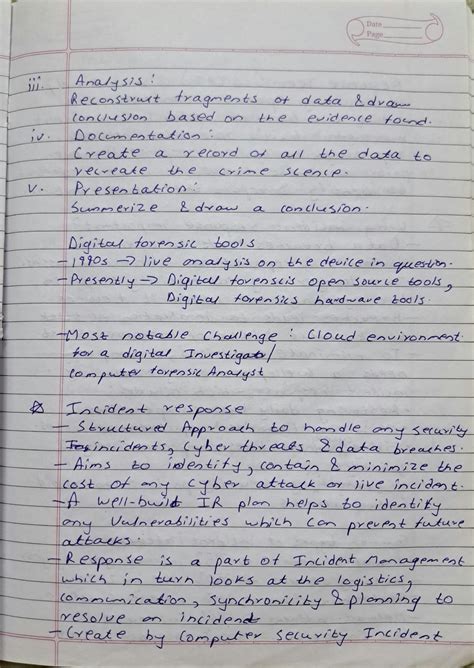 Date
Page
iii. Analysis :
Reconstruct fragments of data & draw
conclusion based on the evidence found.
iv. Documentation :
Create a record of all the data to
recreate the crime scence.
v. Presentation :
Summerize & draw a conclusion.
Digital forensic tools
- 1990s → live analysis on the device in question.
- Presently → Digital forenscis open source tools,
Digital forensics hardware tools.
- Most notable challenge : Cloud environment
for a digital Investigato/
computer forensic Analyst
Incident response
- Structured Approach to handle any security
incidents, cyber threats & data breaches.
- Aims to identify, contain & minimize the
cost of any cyber attack or live incident.
- A well-built IR plan helps to identify
any vulnerabilities which can prevent future
attacks.
- Response is a part of Incident Management
which in turn looks at the logistics,
communication, synchronicity & planning to
resolve an incident
- Create by Computer Security Incident